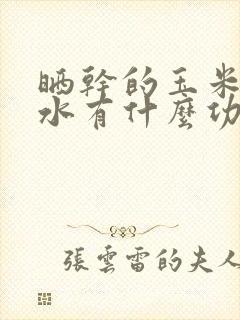 晒幹的玉米
水有什麼功
張雲雷的夫人